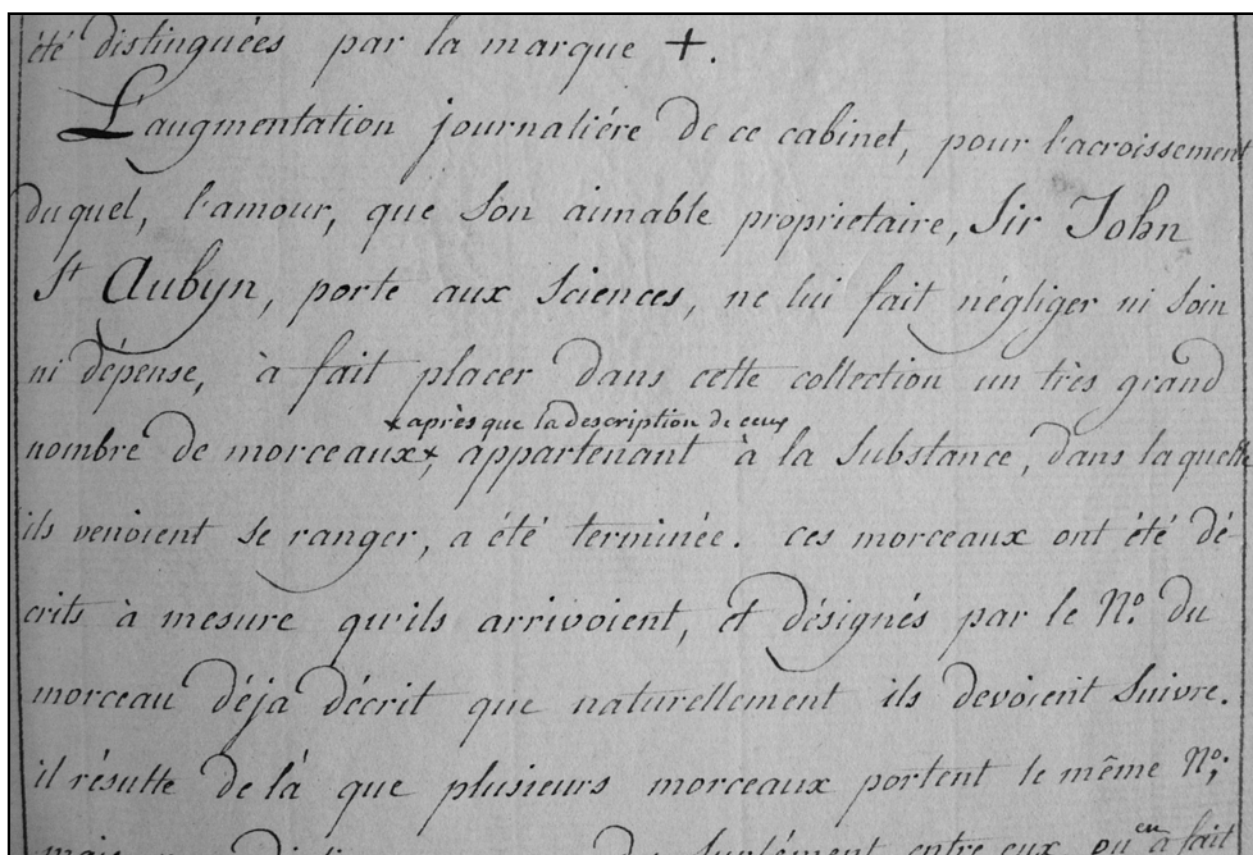 été distinguées par la marque +.
L'augmentation journaliére de ce cabinet, pour l'acroissement
duquel, l'amour, que son aimable proprietaire, Sir John
St Aubyn, porte aux Sciences, ne lui fait négliger ni soin
ni dépense, à fait placer dans cette collection un très grand
+ après que la description de ceux
nombre de morceaux+, appartenant à la Substance, dans laquelle
ils venoient se ranger, a été terminée. ces morceaux ont été dé-
crits à mesure qu'ils arrivoient, et désignés par le No. du
morceau déja décrit que naturellement ils devoient suivre.
il résulte de là que plusieurs morceaux portent le même No;
mais suplément entre eux en a fait